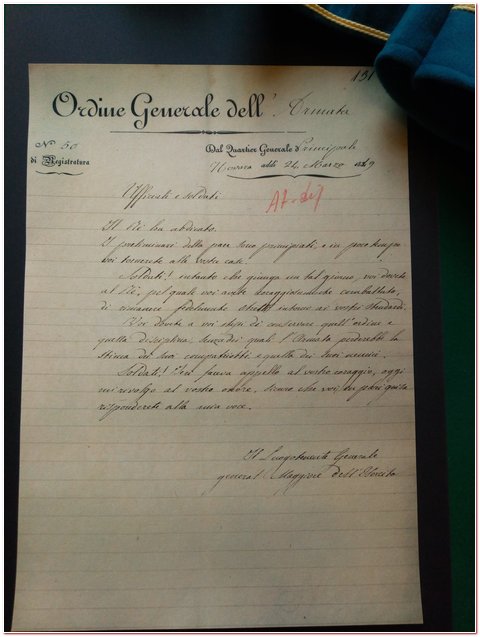 131
Ordine Generale dell' Armata
N.° 50
di Registratura
Dal Quartier Generale Principale
Novara addì 24 Marzo 1849
Uffiziali e soldati
Il Rè ha abdicato.
I preliminari della pace sono principiati, e in poco tempo
voi tornerete alle vostre case.
Soldati! intanto che giunga un tal giorno, voi dovete
al Rè, pel quale voi avete coraggiosamente combattuto,
di rimanere fedelmente stretti intorno ai vostri stendardi.
Voi dovete a voi stessi di conservare quell'ordine e
quella disciplina senza di quali l'Armata perderebbe la
stima dei suoi compatriotti e quella dei suoi nemici.
Soldati! Ieri faceva appello al vostro coraggio, oggi
mi rivolgo al vostro onore, sicuro che voi in pari guisa
risponderete alla mia voce.
Il Luogotenente Generale
general Maggiore dell'Esercito